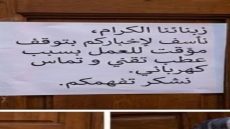 زبنائنا الكرام،
نأسف لإخباركم بتوقف
مؤقت للعمل بسبب
عطب تقني و تماس
كهربائي.
نشكر تفهمكم.